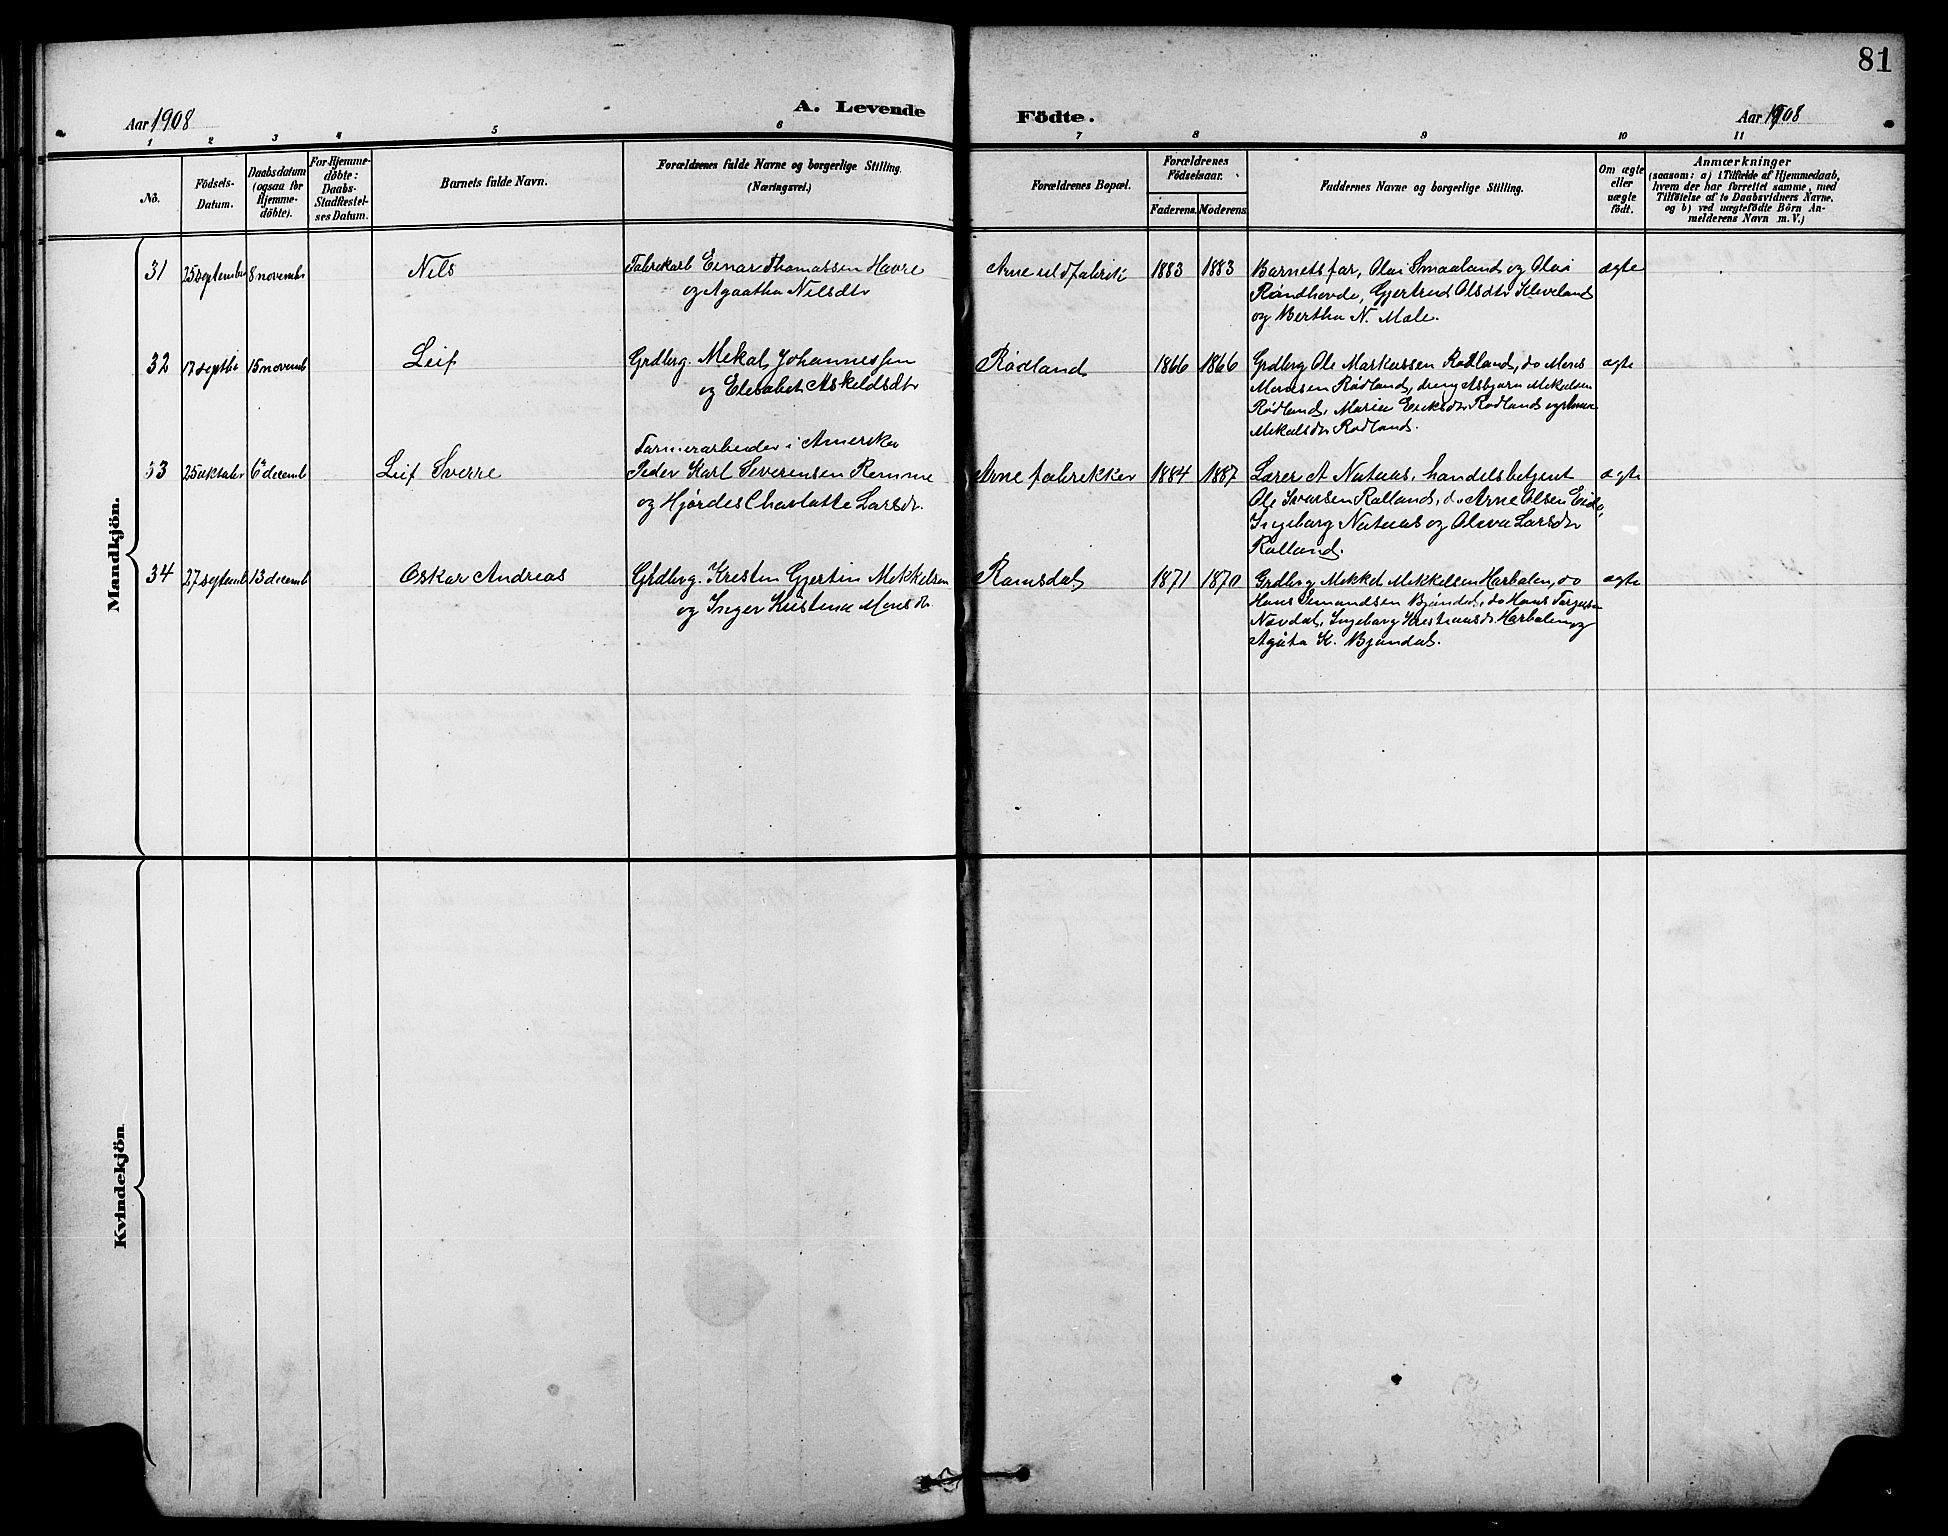 81
A. Levende Födte.
Aar 1908
Aar 1908
1 2 3 4 5 6 7 8 9 10 11
No.
Födsels-
Datum.
Daabsdatum
(ogsaa for
Hjemme-
döbte).
For Hjemme-
döbte:
Daabs-
Stadfæstel-
ses Datum.
Barnets fulde Navn.
Forældrenes fulde Navne og borgerlige Stilling.
(Næringsvei.)
Forældrenes Bopæl.
Forældrenes
Födselsaar.
Faderens. Moderens.
Faddernes Navne og borgerlige Stilling.
Om ægte
eller
uægte
födt.
Anmærkninger
(saasom: a) i Tilfælde af Hjemmedaab,
hvem der har forrettet samme, med
Tilföielse af to Daabsvidners Navne,
og b) ved uægtefödte Börn An-
melderens Navn m. V.)
Mandkjön.
31 25 september 8 novembr Nils Fabrikarb Einar Thomassen Havre
og Agaatha Nilsdtr
Arne uldfabrik 1883 1883 Barnets far, Olai Smaaland og Olai
Råndhovde, Gjertrud Olsdtr Kleveland
og Bertha N. Male.
ægte
32 17 septbr 15 novemb Leif Grdbrg. Mekal Johannessen
og Elisabet Askeldsdtr
Rödland 1866 1866 Grdbrg Ole Markussen Rödland, do Mons
Monsen Rödland, dreng Asbjørn Mekalsen
Rödland, Maria Eriksdtr Rödland og
Mekalsdtr Rødland.
ægte
33 25 oktober 6 decemb Leif Sverre Farmerarbeider i Amerika
Peder Karl Severensen Remme
og Hjørdes Charlotte Larsdtr.
Arne fabrikker 1884 1887 Lærer A Nataas, handelsbetjent
Ole Ivarsen Rolland, do Arne Olsen Eide,
Ingeborg Nataas og Oleva Larsdtr
Rolland.
ægte
34 27 septemb 13 decemb Oskar Andreas Grdbrg. Kresten Gjertin Mekkelsen
og Inger Kristina Monsdtr.
Romsdal 1871 1870 Grdbrg Mekkel Mekkelsen Herbalen, do
Hans Simundsen Bjåndal, do Hans Torjusen
Navdal, Ingeborg Krestiansdtr Herbalen og
Agáta K. Bjåndal.
ægte
Kvindekjön.